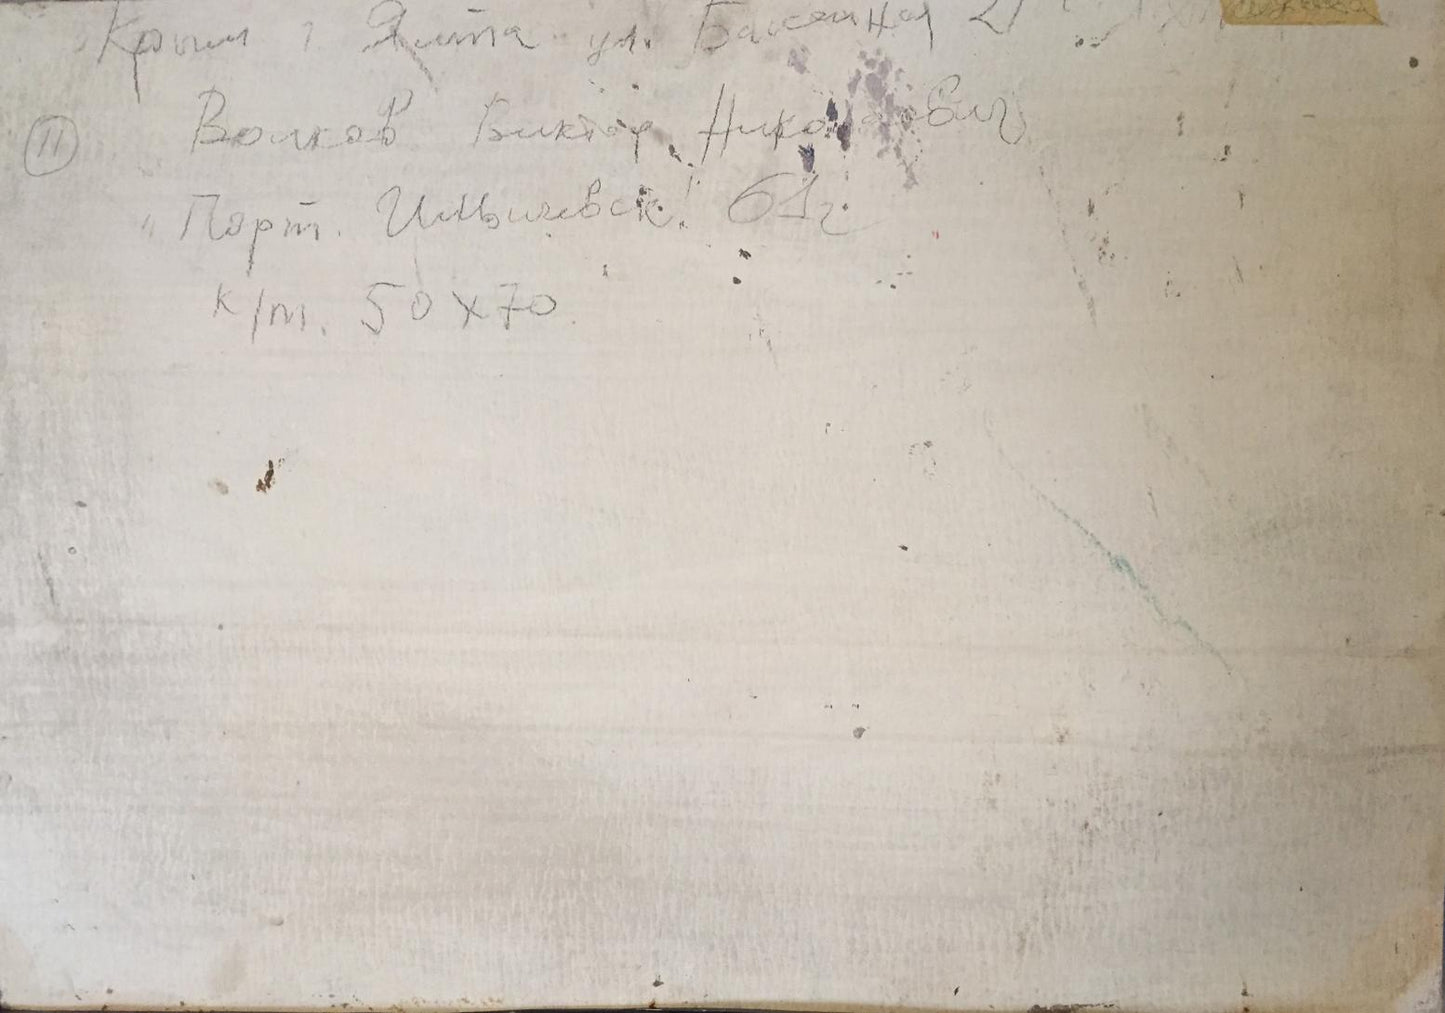 Крым г Ялта ул. 21
(11) Волков Виктор Николаевич
" Порт. Ильичевск! 61г
к/т. 50х70